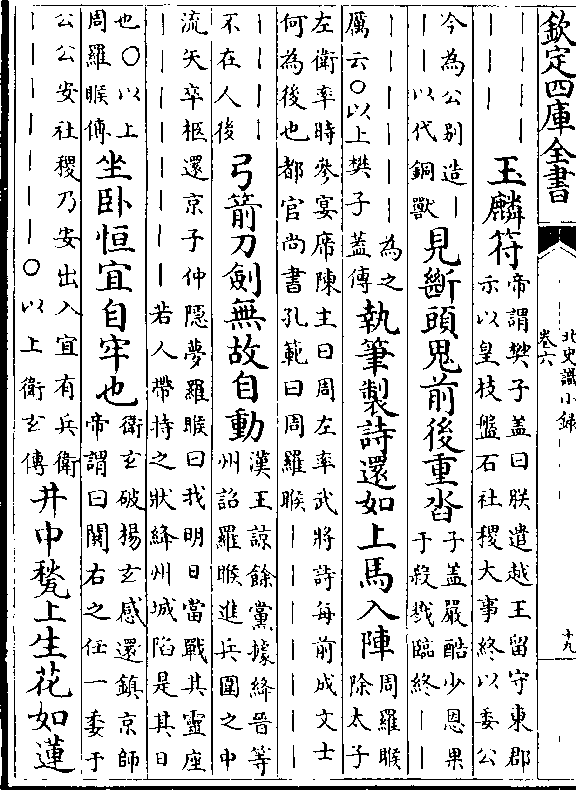 欽定四庫全書
北史識小錄
卷六
十九
｜｜｜
｜｜｜
玉麟符
帝謂樊子蓋曰朕遣越王留守東郡
示以皇枝盤石社稷大事終以委公
今為公别造｜
｜｜以代銅獸
見斷頭鬼前後重沓
子蓋嚴酷少恩果
于殺戮臨終｜｜
｜｜｜｜｜｜為之
厲云○以上樊子蓋傳
執筆製詩還如上馬入陣
周羅睺
除太子
左衛率時參宴席陳主曰周左率武將詩每前成文士
何為後也都官尚書孔範曰周羅睺｜｜｜｜｜｜
｜｜｜｜
不在人後
弓箭刀劍無故自動
漢王諒餘黨據絳晉等
州詔羅睺進兵圍之中
流矢卒柩還京子仲隱夢羅睺曰我明日當戰其靈座
｜｜｜｜｜｜｜｜若人帶持之狀絳州城陷是其日
也○以上
周羅睺傳
坐卧恒宜自牢也
衛玄破楊玄感還鎮京師
帝謂曰關右之任一委于
公公安社稷乃安出入宜有兵衛
｜｜｜｜｜｜｜○以上衛玄傳
井中甃上生花如蓮